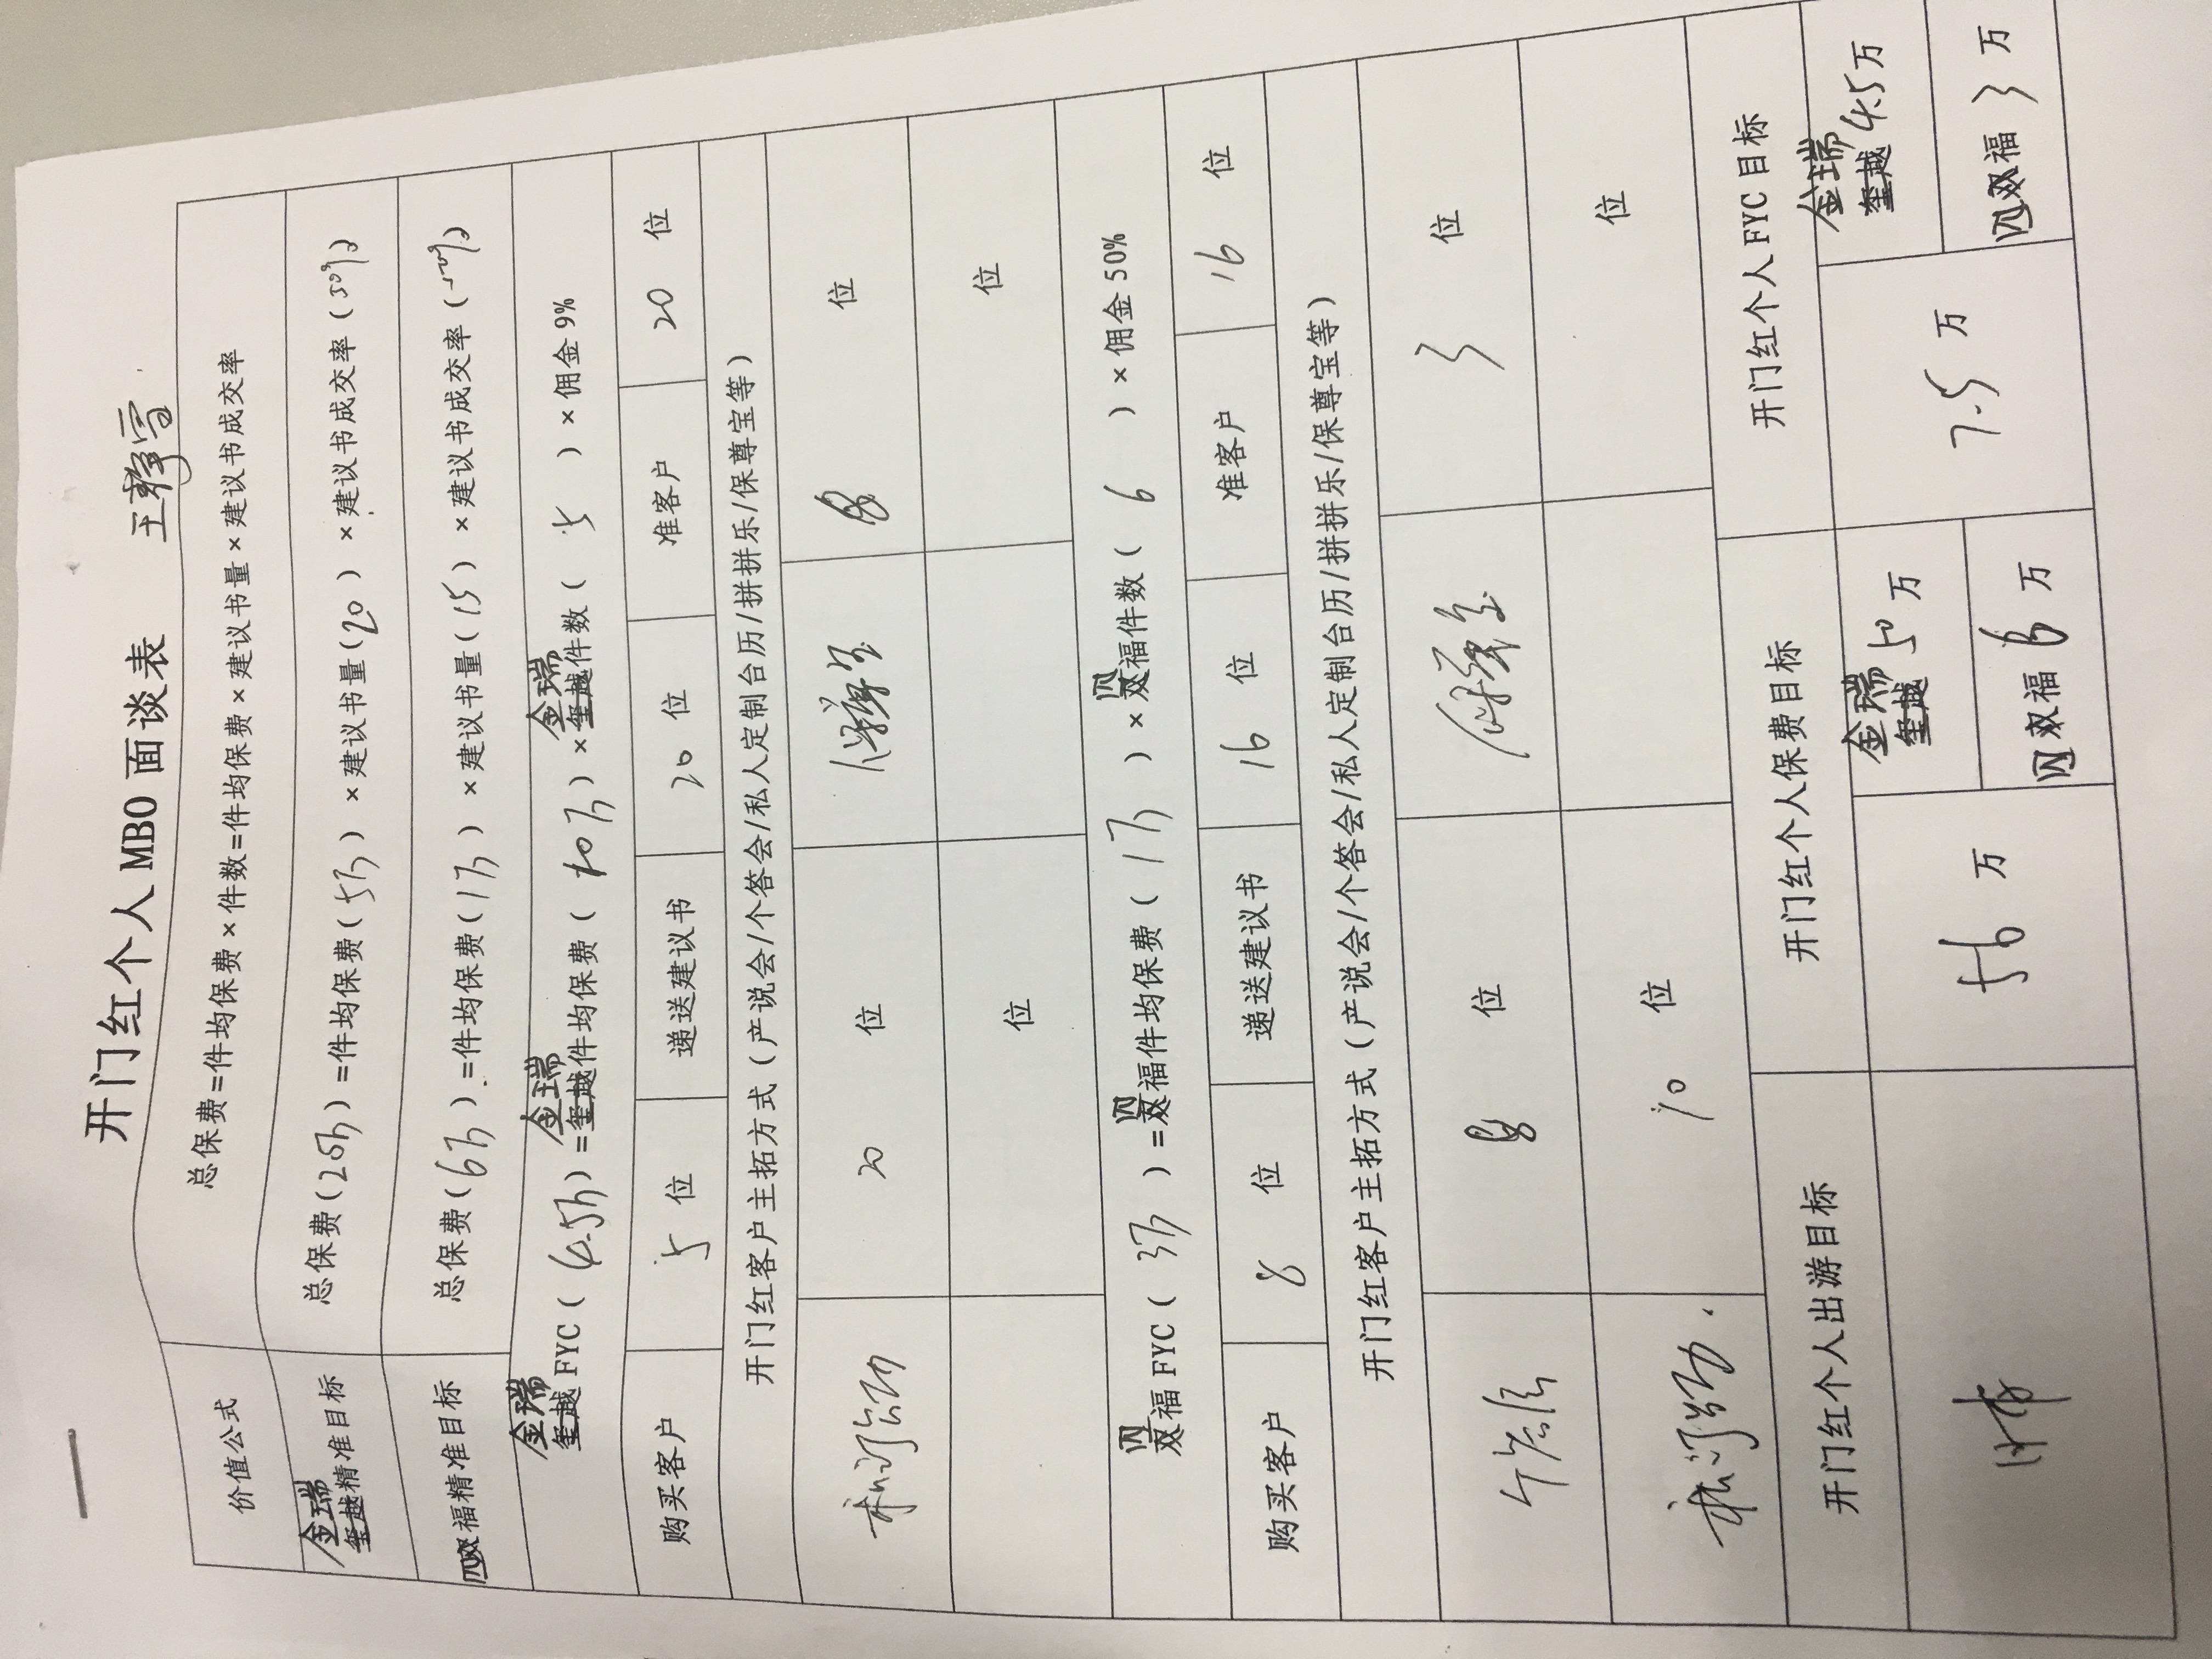 开门红个人MBO面谈表 王静雪
价值公式 总保费=件均保费×件数=件均保费×建议书量×建议书成交率
金瑞
玺越精准目标 总保费(25万)=件均保费(5万)×建议书量(20)×建议书成交率(30%)
四双福精准目标 总保费(6万)=件均保费(1万)×建议书量(15)×建议书成交率(50%)
金瑞 金瑞 金瑞
玺越FYC(4.5万)=玺越件均保费(10万)×玺越件数(5)×佣金9%
购买客户 5位 递送建议书 20位 准客户 20位
开门红客户主拓方式(产说会/个答会/私人定制台历/拼拼乐/保尊宝等)
20 位 保尊宝 8 位
位 位
四 四 四
双福FYC(3万)=双福件均保费(1万)×双福件数(6)×佣金50%
购买客户 8位 递送建议书 16位 准客户 16位
开门红客户主拓方式(产说会/个答会/私人定制台历/拼拼乐/保尊宝等)
个答会 8 位 保尊宝 3 位
10 位 位
开门红个人出游目标 开门红个人保费目标 开门红个人FYC目标
56万 金瑞 玺越 50万 7.5万 金瑞 玺越 4.5万
四双福 6万 四双福 3万